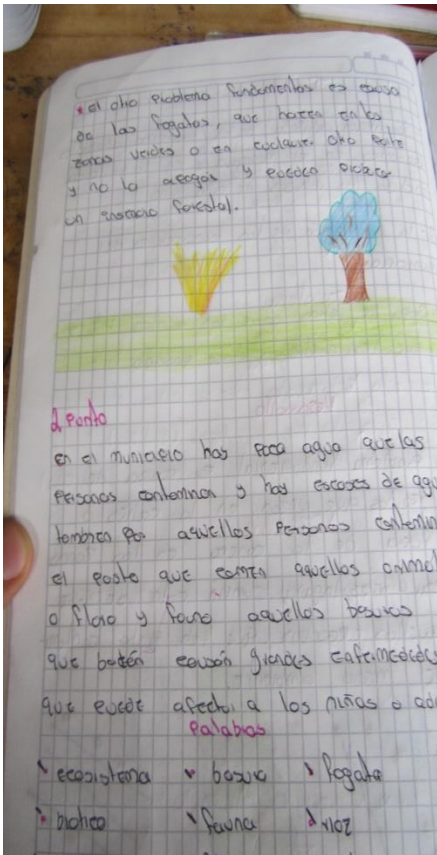 • el otro problema fundamentos es
de las fogatas, que hacen en las
zonas verdes o en otro
y no lo apagan y puede
un forestal).
2 Punto
en el municipio hay poca agua que las
personas contaminan y hay escases de agu
tambien por aquellos personas contamin
el pasto que comen aquellos animal
o flora y fauna aquellos basuras
que botan causan grandes enfermedades
que puede afectar a los niñas o ad
Palabras
ecosistema basura fogata
biotico fauna